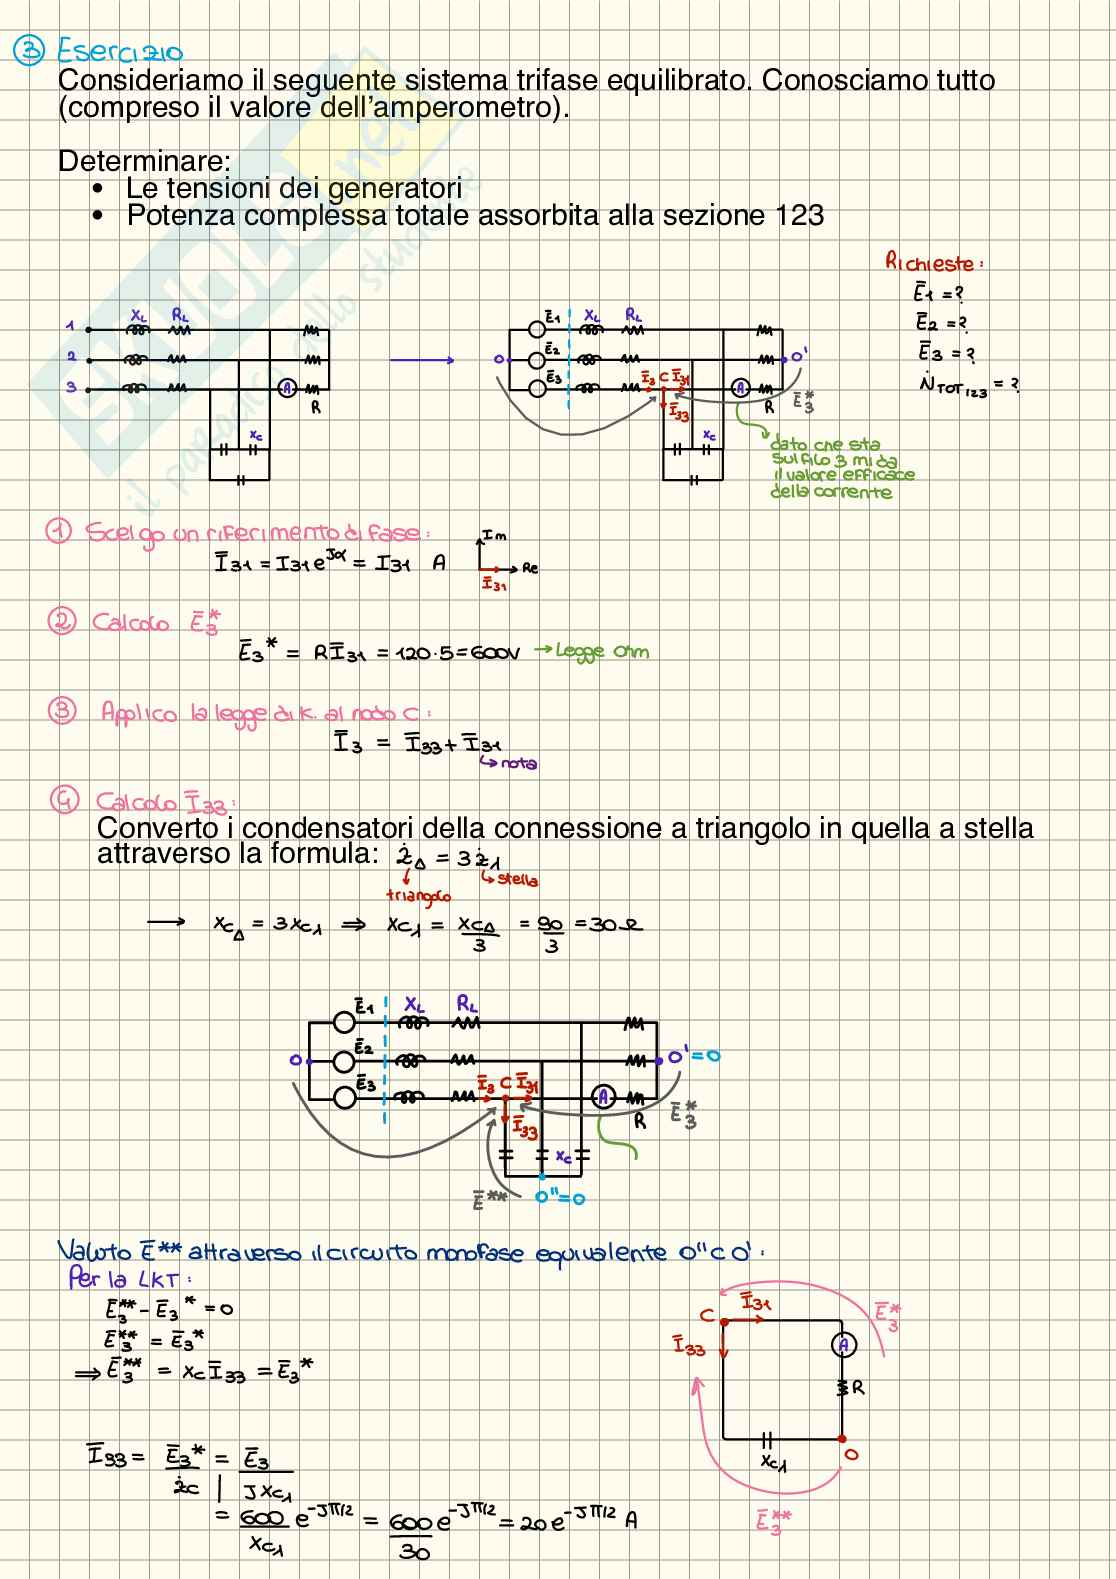 ③ Esercizio
Consideriamo il seguente sistema trifase equilibrato. Conosciamo tutto
(compreso il valore dell'amperometro).
Determinare:
• Le tensioni dei generatori
• Potenza complessa totale assorbita alla sezione 123
Richieste:
Ē1 = ?
Ē2 = ?
Ē3 = ?
ṄTOT123 = ?
1 XL RL
2
3 A R
xc
Ē1 XL RL
0 Ē2 0'
Ē3 Ī3 C Ī31 A R Ē3*
Ī33
xc
dato che sta
sul filo 3 mi dà
il valore efficace
della corrente
① Scelgo un riferimento di fase:
Ī31 = I31 e^Jα = I31 A
Im
Re
Ī31
② Calcolo Ē3*
Ē3* = RĪ31 = 120·5 = 600V → Legge Ohm
③ Applico la legge di K. al nodo C:
Ī3 = Ī33 + Ī31
↳ nota
④ Calcolo Ī33:
Converto i condensatori della connessione a triangolo in quella a stella
attraverso la formula: żΔ = 3żλ
↳ stella
triangolo
→ xcΔ = 3xcλ ⇒ xcλ = xcΔ/3 = 90/3 = 30Ω
Ē1 XL RL
0 Ē2 0' = 0
Ē3 Ī3 C Ī31 A R Ē3*
Ī33
xc
Ē** 0'' = 0
Valuto Ē** attraverso il circuito monofase equivalente 0'' C 0':
Per la LKT:
Ē3** - Ē3* = 0
Ē3** = Ē3*
⇒ Ē3** = xc Ī33 = Ē3*
C Ī31 Ē3*
Ī33 A
R
xcλ 0
Ē3**
Ī33 = Ē3*/żc | = Ē3/Jxcλ
= 600/xcλ e^-Jπ/2 = 600/30 e^-Jπ/2 = 20 e^-Jπ/2 A
SKUOLA.net
il paradiso dello studente